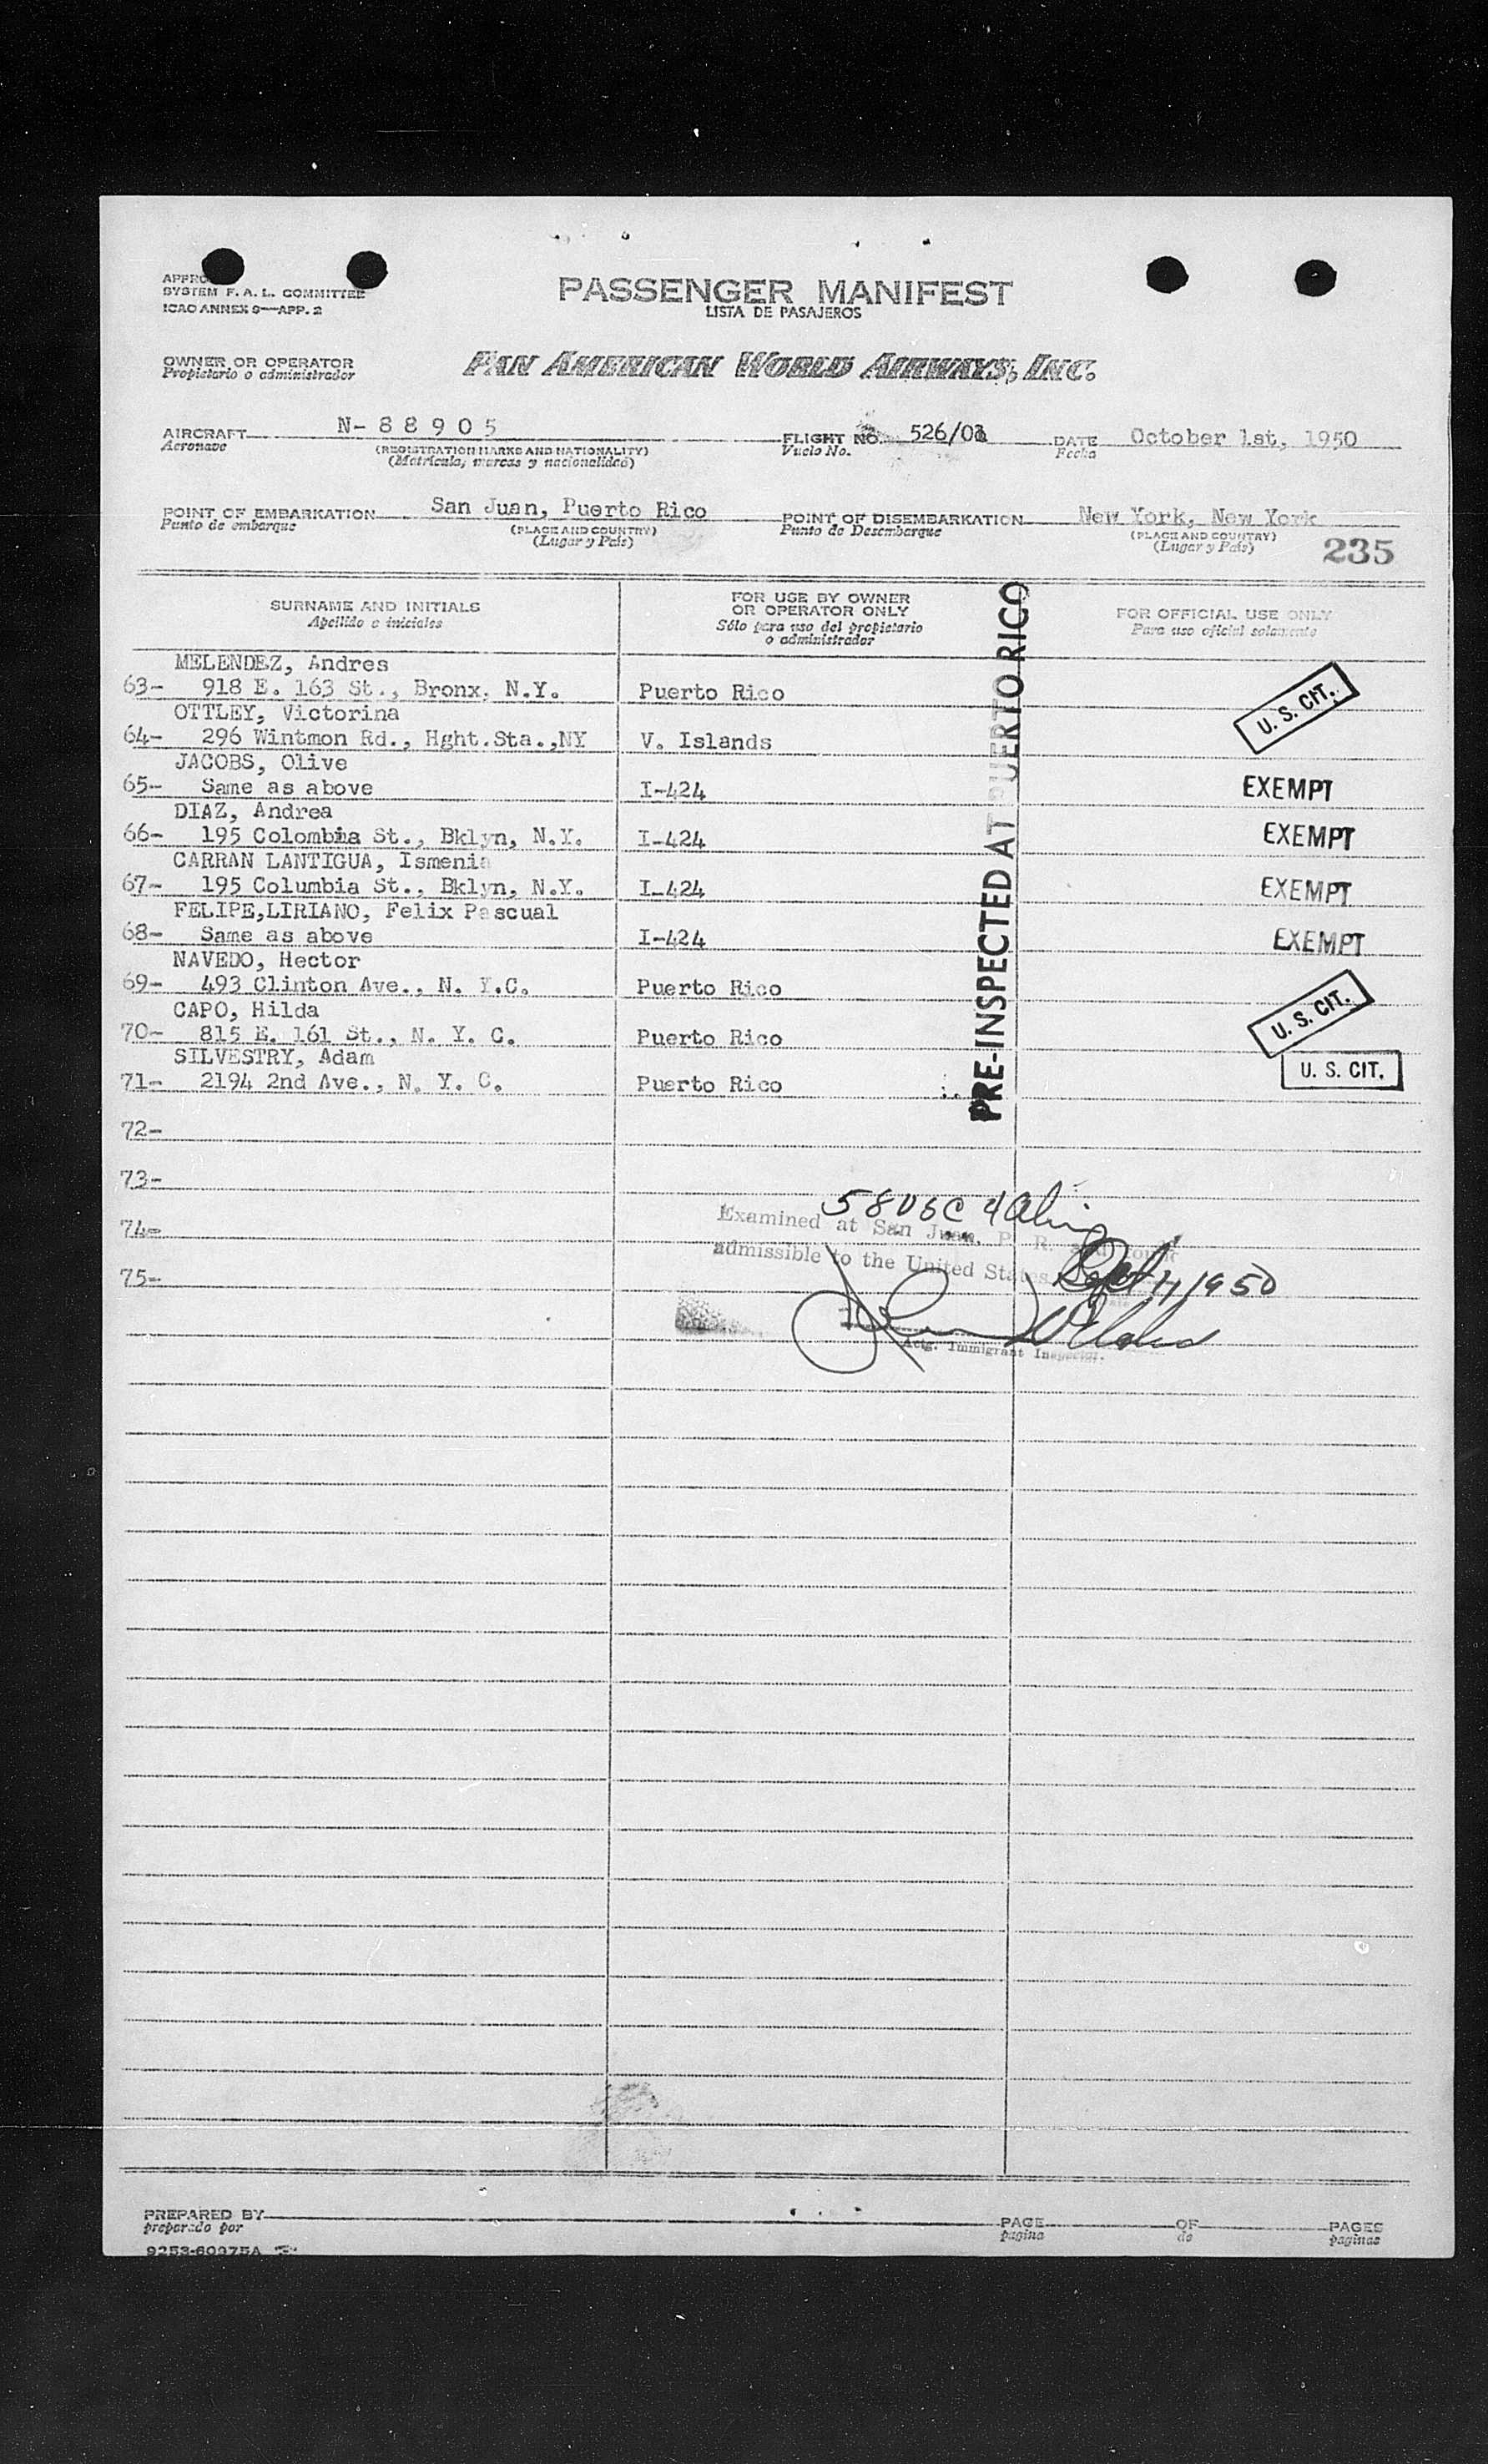 APPRO
SYSTEM F. A. L. COMMITTEE
ICAO ANNEX 9—APP. 2
PASSENGER MANIFEST
LISTA DE PASAJEROS
OWNER OR OPERATOR
Propietario o administrador
PAN AMERICAN WORLD AIRWAYS, INC.
AIRCRAFT N-88905
Aeronave
(REGISTRATION MARKS AND NATIONALITY)
(Matrícula, marcas y nacionalidad)
FLIGHT NO. 526/01
Vuelo No.
DATE October 1st, 1950
Fecha
POINT OF EMBARKATION San Juan, Puerto Rico
Punto de embarque
(PLACE AND COUNTRY)
(Lugar y País)
POINT OF DISEMBARKATION New York, New York
Punto de Desembarque
(PLACE AND COUNTRY)
(Lugar y País)
235
SURNAME AND INITIALS
Apellido e iniciales
FOR USE BY OWNER
OR OPERATOR ONLY
Sólo para uso del propietario
o administrador
FOR OFFICIAL USE ONLY
Para uso oficial solamente
PRE-INSPECTED AT PUERTO RICO
MELENDEZ, Andres
63- 918 E. 163 St., Bronx, N.Y. Puerto Rico U. S. CIT.
OTTLEY, Victorina
64- 296 Wintmon Rd., Hght.Sta.,NY V. Islands
JACOBS, Olive
65- Same as above I-424 EXEMPT
DIAZ, Andrea
66- 195 Colombia St., Bklyn, N.Y. I-424 EXEMPT
CARRAN LANTIGUA, Ismenia
67- 195 Columbia St., Bklyn, N.Y. I-424 EXEMPT
FELIPE,LIRIANO, Felix Pascual
68- Same as above I-424 EXEMPT
NAVEDO, Hector
69- 493 Clinton Ave., N. Y.C. Puerto Rico
CAPO, Hilda
70- 815 E. 161 St., N. Y. C. Puerto Rico U. S. CIT.
SILVESTRY, Adam
71- 2194 2nd Ave., N. Y. C. Puerto Rico U. S. CIT.
72-
73-
74-
75-
58 USC 4
Examined at San Juan, P. R. and found
admissible to the United States
1950
Actg. Immigrant Inspector.
PREPARED BY
preparado por
PAGE OF PAGES
pagina de paginas
9253-60375A